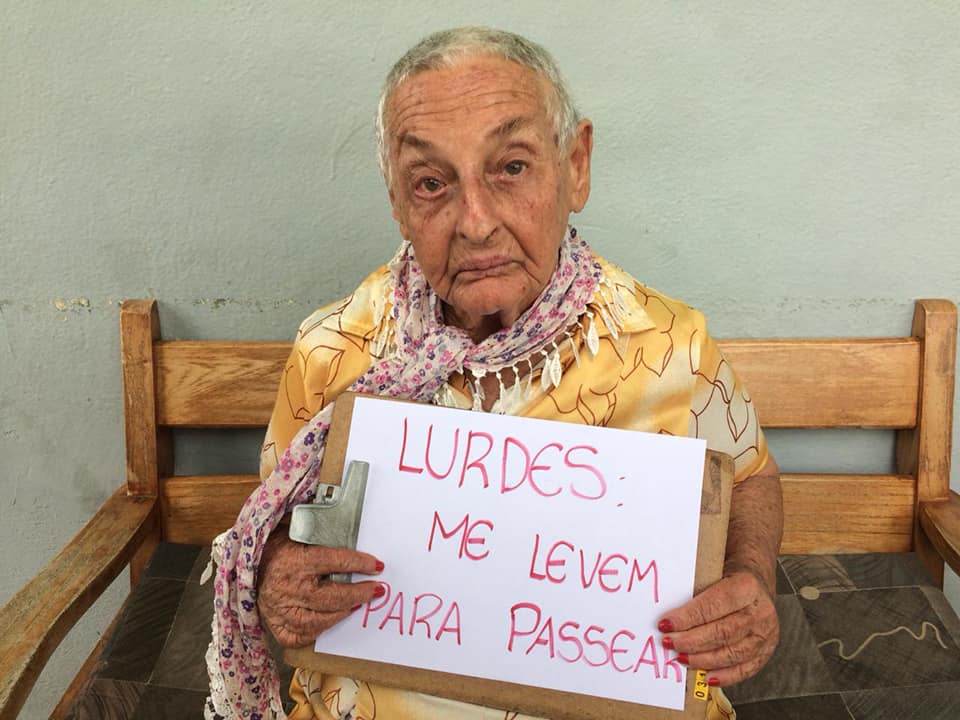 LURDES:
ME LEVEM
PARA PASSEAR